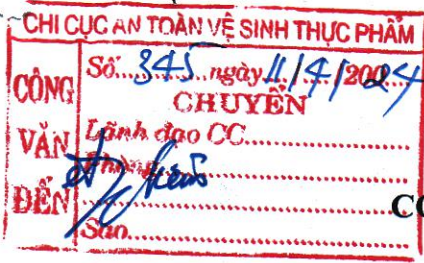 CHI CỤC AN TOÀN VỆ SINH THỰC PHẨM
CÔNG VĂN ĐẾN
Số...345...ngày 11/4/2024
CHUYỂN
Lãnh đạo CC
Phòng
Sao
CC